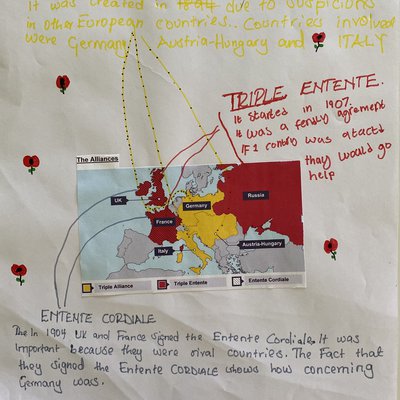 It was created in 1894 due to suspicions
in other European countries.. Countries involved
were Germany, Austria-Hungary and ITALY
TRIPLE ENTENTE.
It started in 1907.
It was a fendly agrement
IF 1 contry was atacd
they would go
help
The Alliances
UK
France
Germany
Russia
Italy
Austria-Hungary
Triple Alliance
Triple Entente
Entente Cordiale
ENTENTE CORDIALE
The In 1904 UK and France signed the Entente Cordiale. It was
important because they were rival countries. The Fact that
they signed the Entente CORDIALE shows how concerning
Germany was.